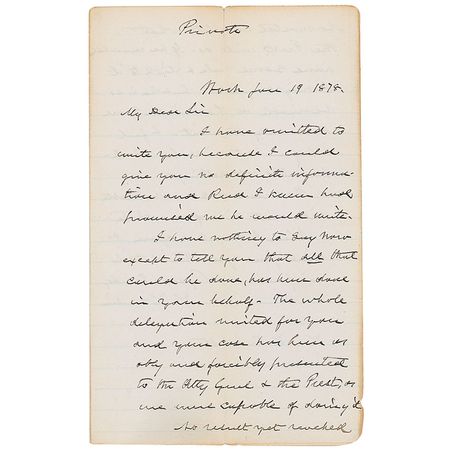 Private
Wash Jan 19 1878
My Dear Sir
I have omitted to
write you, because I could
give you no definite informa-
tion and Reed I knew had
promised me he would write.
I have nothing to say now
except to tell you that all that
could be done, has been done
in your behalf - The whole
delegation united for you
and your case has been as
ably and forcibly presented
to the Atty Genl & the Prest, as
we were capable of doing it
No result yet reached